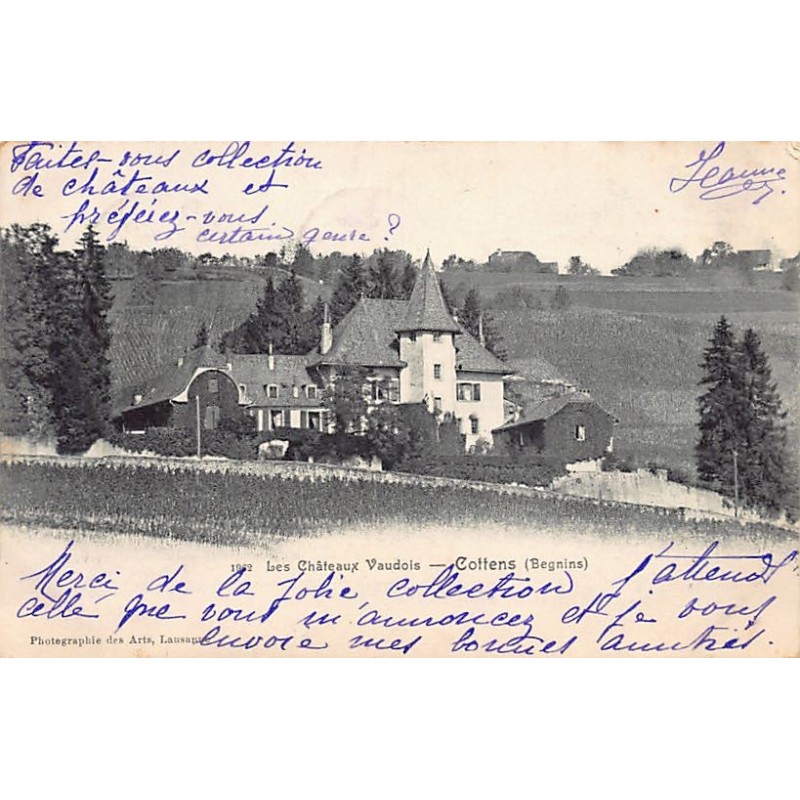 Faites-vous collection
de châteaux et
préférez-vous
certain genre ?
Jeanne
1062 Les Châteaux Vaudois — Cottens (Begnins)
Merci de la jolie collection j'attends
celle que vous m'annoncez et je vous
envoie mes bonnes amitiés.
Photographie des Arts, Lausanne